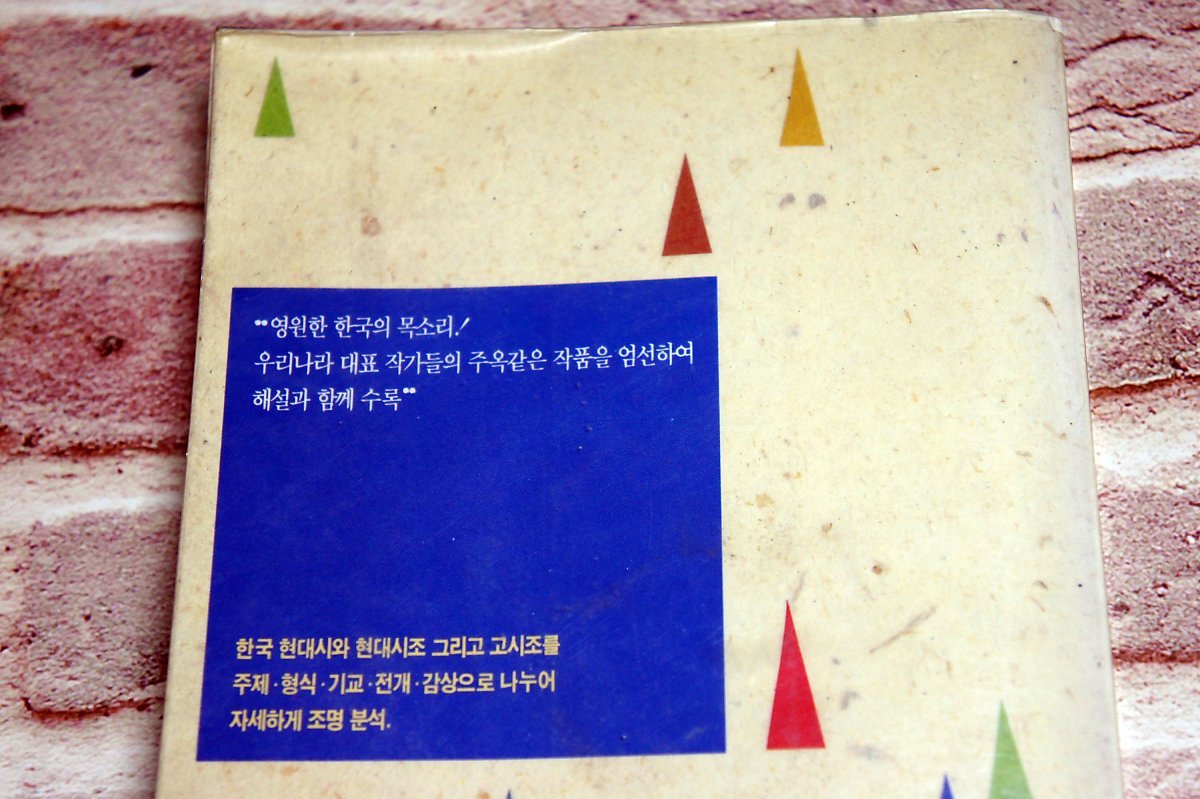 ❝영원한 한국의 목소리!
우리나라 대표 작가들의 주옥같은 작품을 엄선하여
해설과 함께 수록❞
한국 현대시와 현대시조 그리고 고시조를
주제·형식·기교·전개·감상으로 나누어
자세하게 조명 분석.